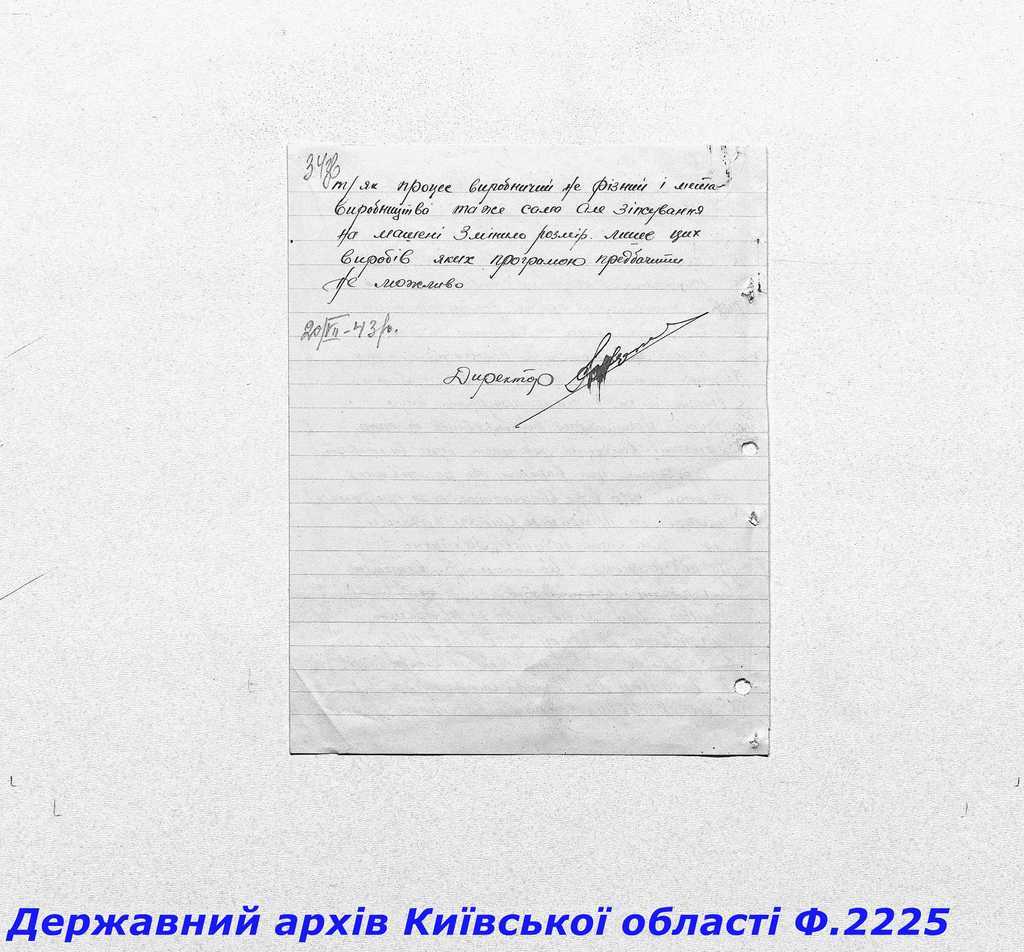 т/як процес виробничий не фізний і мета
виробництва таже само але зіпсування
на машені Змінило розмір. лише цих
виробів яких програмою предбачити
не можливо
20/VII-43 р.
Директор
Державний архів Київської області Ф.2225